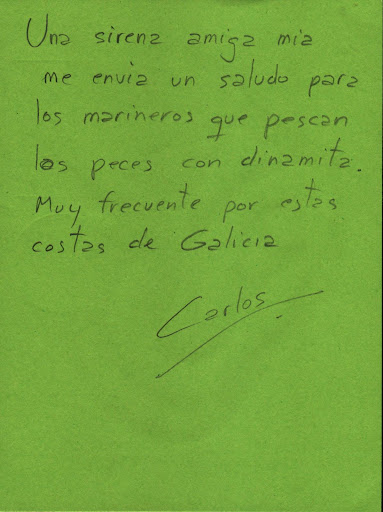 Una sirena amiga mia
me envia un saludo para
los marineros que pescan
los peces con dinamita.
Muy frecuente por estas
costas de Galicia
Carlos